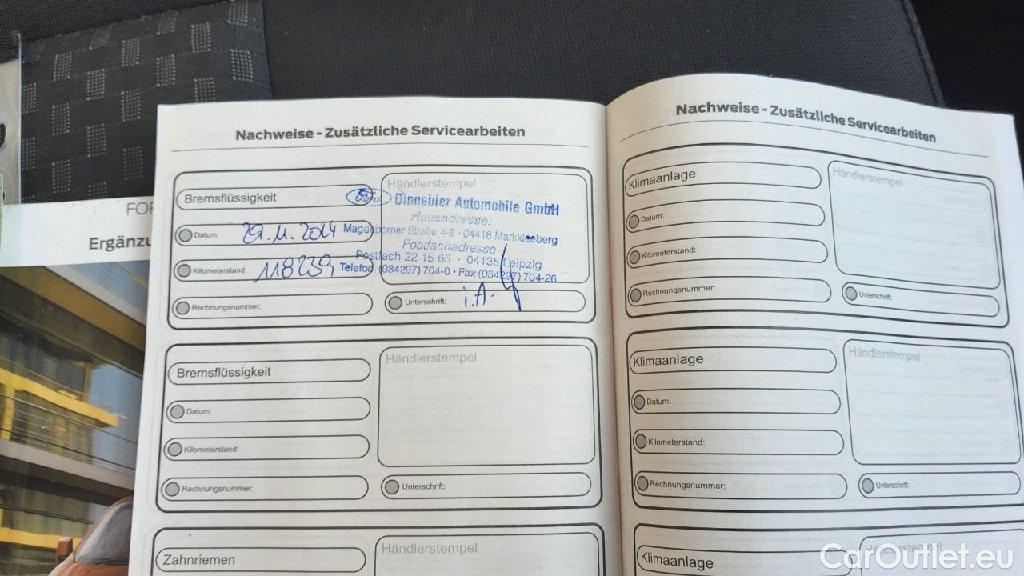 FOR
Ergänzu
Nachweise - Zusätzliche Servicearbeiten
Bremsflüssigkeit
Händlerstempel
Dinnebier Automobile GmbH
Hausadresse:
Magdeborner Straße 4-6 · 04416 Markkleeberg
Postfachadresse
Postfach 22 15 65 · 04135 Leipzig
Telefon (034297) 704-0 · Fax (034297) 704-26
Datum: 29.11.2014
Kilometerstand: 118239
Rechnungsnummer:
Unterschrift: i.A.
Bremsflüssigkeit
Händlerstempel
Datum:
Kilometerstand:
Rechnungsnummer:
Unterschrift:
Zahnriemen
Händlerstempel
Nachweise - Zusätzliche Servicearbeiten
Klimaanlage
Händlerstempel
Datum:
Kilometerstand:
Rechnungsnummer:
Unterschrift:
Klimaanlage
Händlerstempel
Datum:
Kilometerstand:
Rechnungsnummer:
Unterschrift:
Klimaanlage
CarOutlet.eu